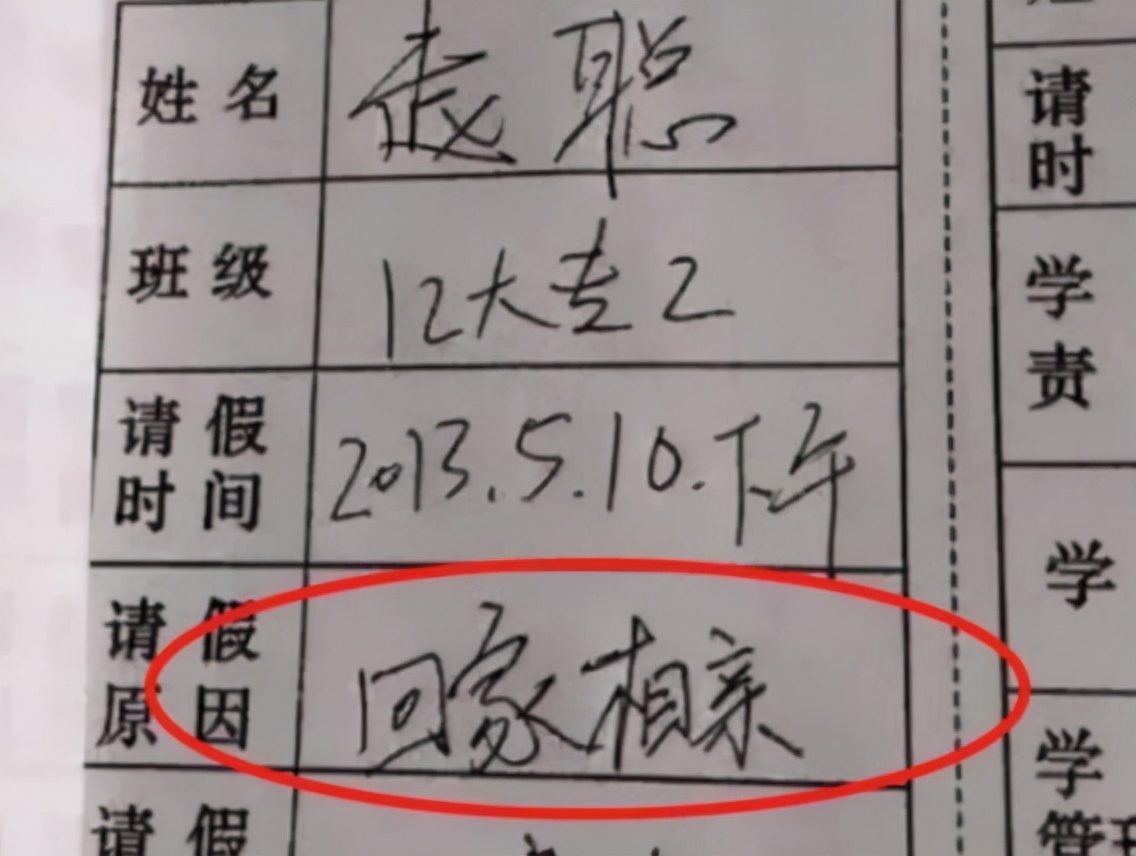 姓名 赵聪
班级 12大专2
请假时间 2013.5.10.下午
请假原因 回家相亲
请假
请
时
学
责
学
学
管理